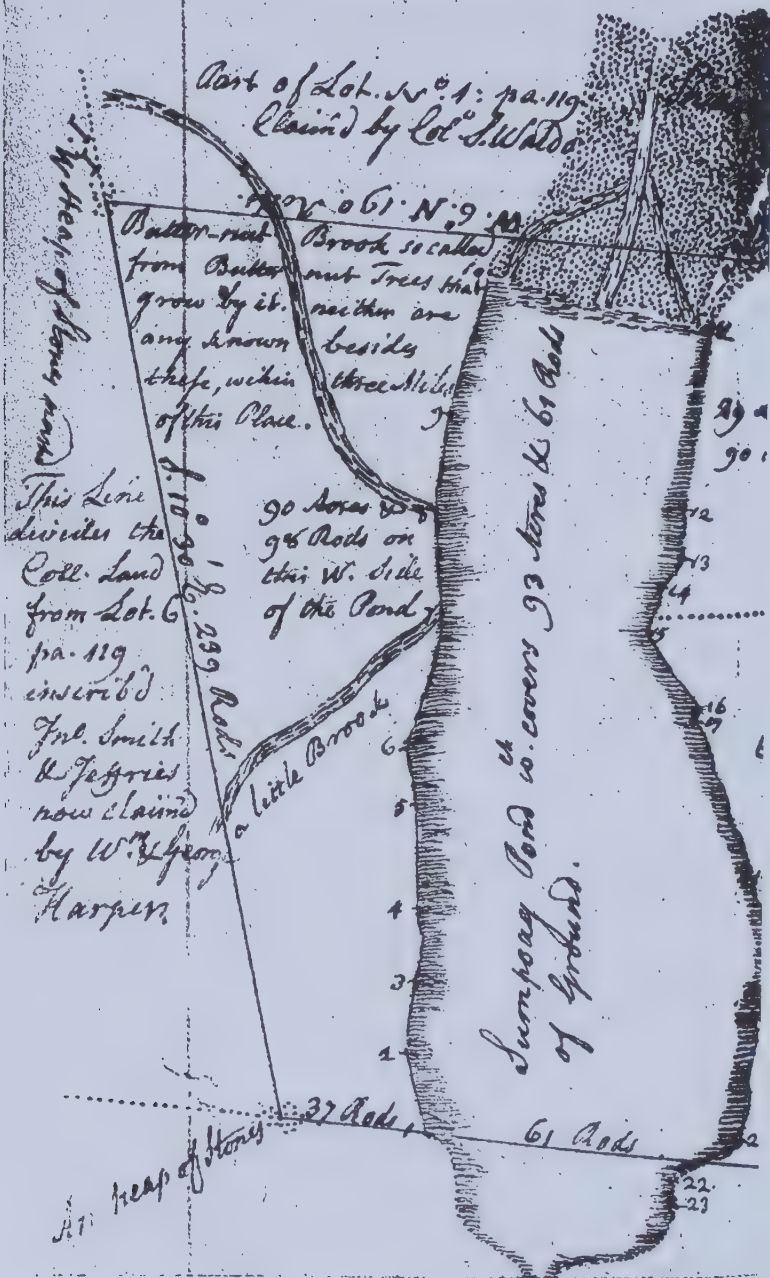 Part of Lot. No. 1: pa. 119
Claim'd by Colo. S. Waldo
W. 6°. N. 190
Butter-nut Brook so called
from Butternut Trees that
grow by it. neither are
any known besides
these, within three Miles
of this Place.
Heap of Stones
This Line
divides the
Coll. Land
from Lot. 6
pa. 119
inscrib'd
Jno. Smith
& Jeffries
now claim'd
by Wm. & George
Harper.
S. 10° 30' E. 239 Rods
90 Acres &
98 Rods on
this W. Side
of the Pond
a little Brook
Sumpoag Pond wch. covers 93 Acres & 61 Rods
of Ground.
29
90
9
12
13
14
15
16
17
6
5
4
3
1
37 Rods
61 Rods
2
22.
23
An heap of Stones